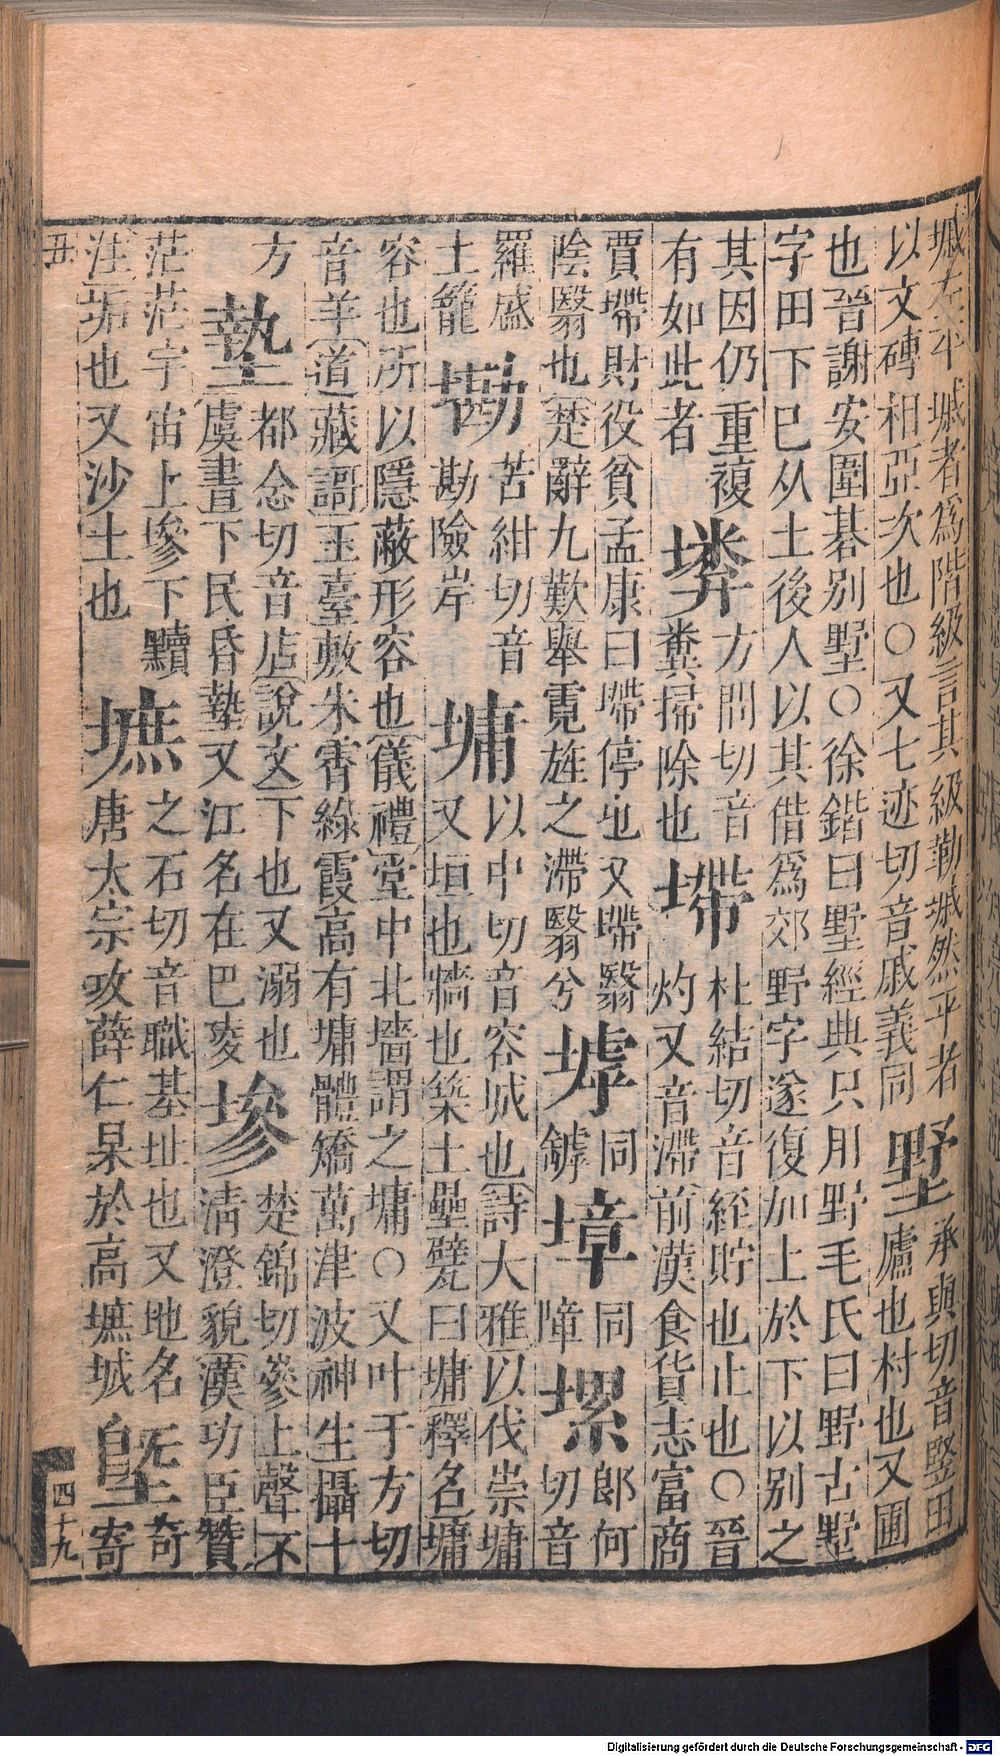 墄左平墄者爲階級言其級勒墄然平者
以文磚相亞次也○又七迹切音戚義同
墅承與切音豎田
廬也村也又圃
也晉謝安圍碁别墅○徐鍇曰墅經典只用野毛氏曰野古墅
字田下已从土後人以其借爲郊野字遂復加土於下以别之
其因仍重複
有如此者
方問切音
糞掃除也
墆杜結切音絰貯也止也○晉
灼又音滯前漢食貨志富商
賈墆財役貧孟康曰墆停也又墆翳
陰翳也楚辭九歎舉霓旌之滯翳兮
㙤同
罅
墇同
障
郎何
切音
羅盛
土籠
墈苦紺切音
勘險岸
墉以中切音容城也詩大雅以伐崇墉
又垣也牆也築土壘甓曰墉釋名墉
容也所以隱蔽形容也儀禮堂中北墻謂之墉○又叶于方切
音羊道藏謌玉臺敷朱霄綠霞高有墉體矯萬津波神生攝十
方
墊都念切音店說文下也又溺也
虞書下民昏墊又江名在巴夌
墋楚錦切參上聲不
清澄貌漢功臣贊
茫茫宇宙上墋下黷
注垢也又沙土也
墌之石切音職基址也又地名
唐太宗攻薛仁杲於高墌城
墍奇
寄
丑
四十九
Digitalisierung gefördert durch die Deutsche Forschungsgemeinschaft - DFG